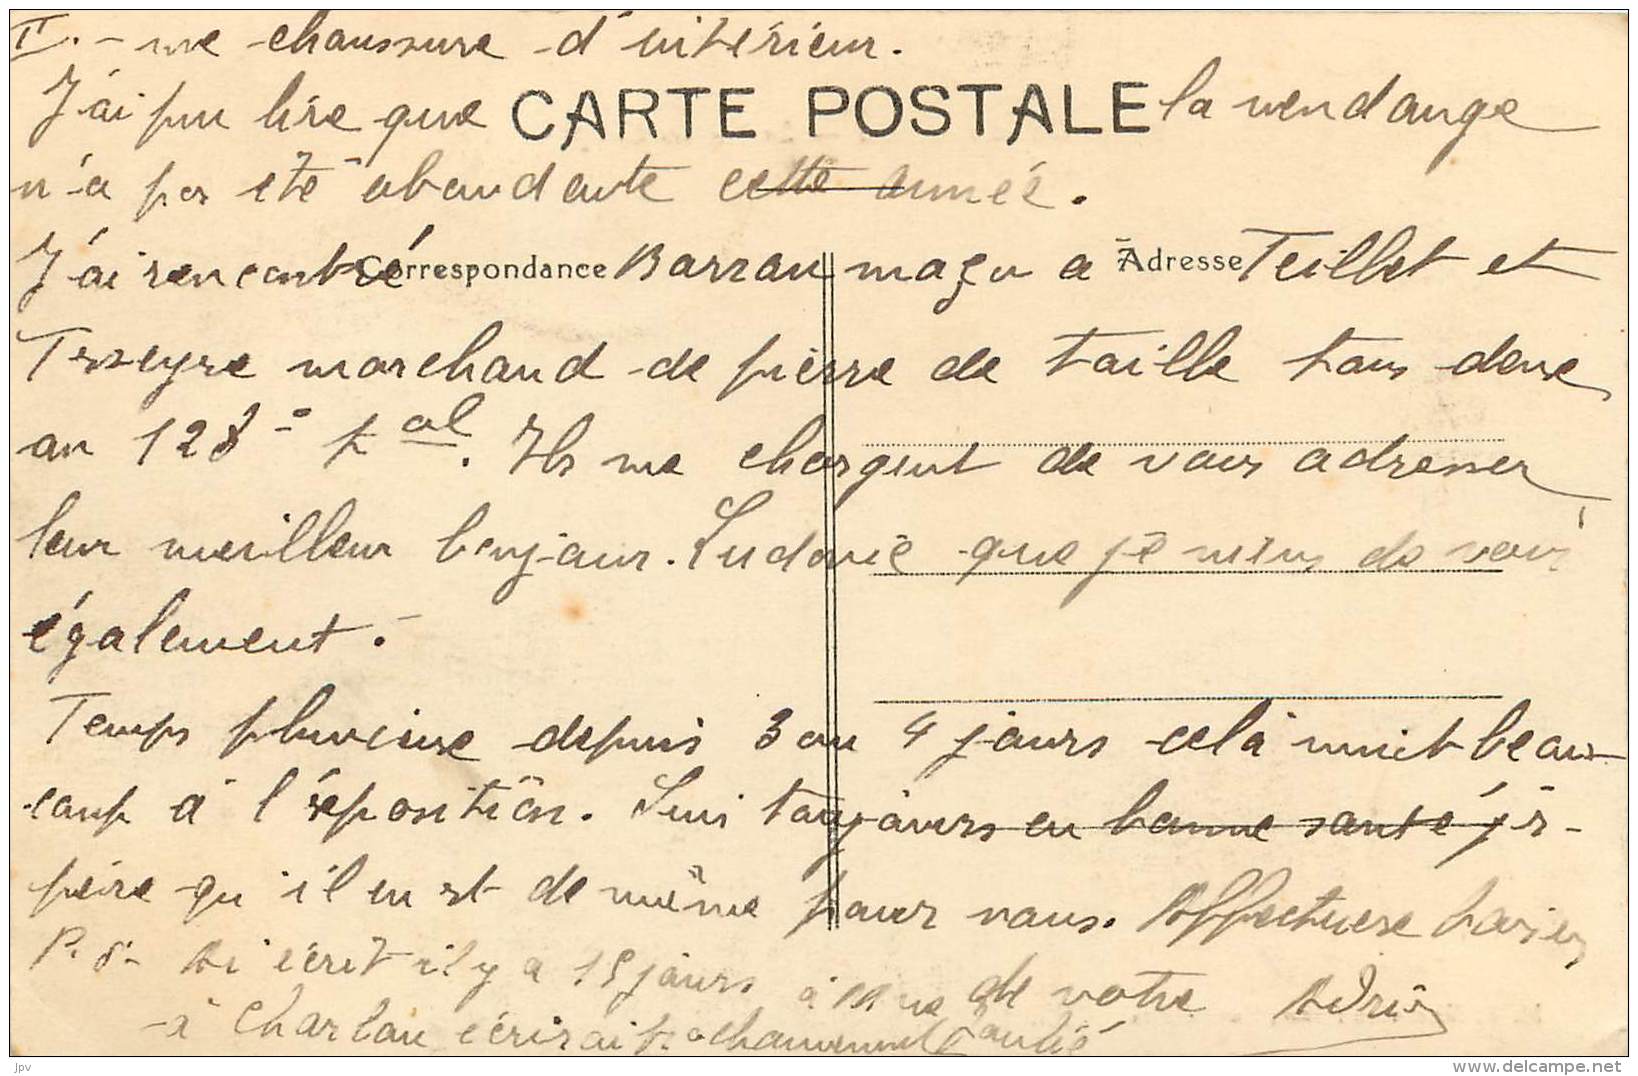 II. - une chaussure d'intérieur.
J'ai pu lire que CARTE POSTALE la vendange
n'a pas été abondante cette année.
J'ai rencontré Correspondance Barrau maçon a Adresse Teillet et
Teyseyre marchand de pierre de taille tous deux
au 128e tal. Ils me chargent de vous adresser
leur meilleur bonjour. Ludovic que je viens de voir
également.
Temps pluvieux depuis 3 ou 4 jours celà nuit beau-
coup à l'exposition. Suis toujours en bonne santé j'es-
père qu'il en est de même pour vous. Affectueux baisers
P.S. Ai écrit il y a 15 jours à Mme de votre Adrien
à Charlau écrirai prochainement
jpv
www.delcampe.net